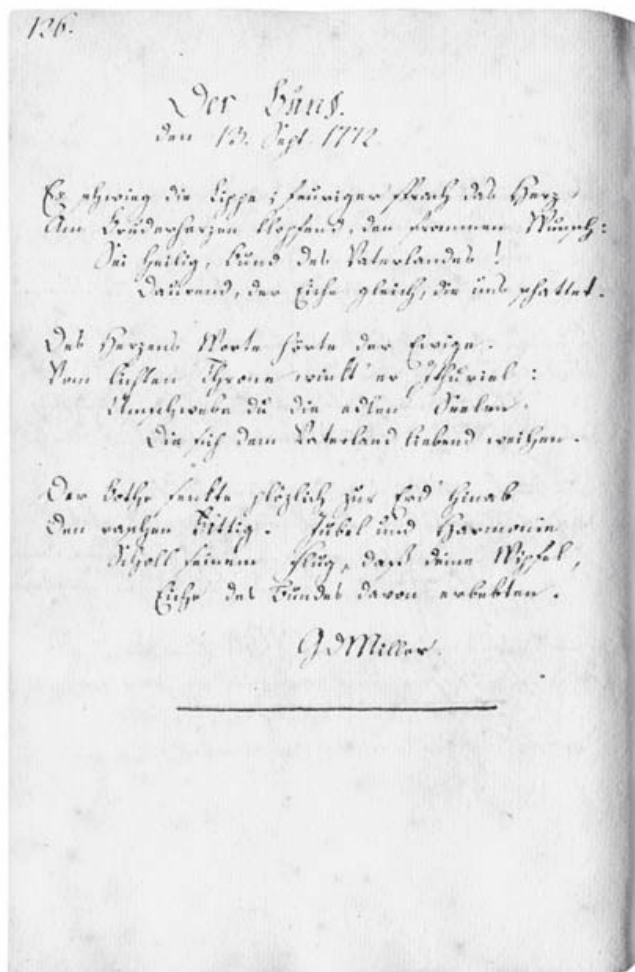 126.
Der Bund.
den 12. Sept. 1772.
Es schwieg die Lippe; feuriger sprach das Herz
Am Bruderherzen klopfend, den frommen Wunsch:
Sei heilig, Bund des Vaterlandes!
Daurend, der Eiche gleich, die uns schattet.
Des Herzens Worte hörte der Ewige.
Vom lichten Throne winkt er Ithuriel:
Umschwebe du die edlen Seelen.
Die sich dem Vaterland liebend weihen.
Der Bothe senkte plözlich zur Erd' hinab
Den raschen Fittig. Jubel und Harmonie
Scholl seinem Flug, daß deine Wipfel,
Eiche des Bundes davon erbebten.
GdMiller.